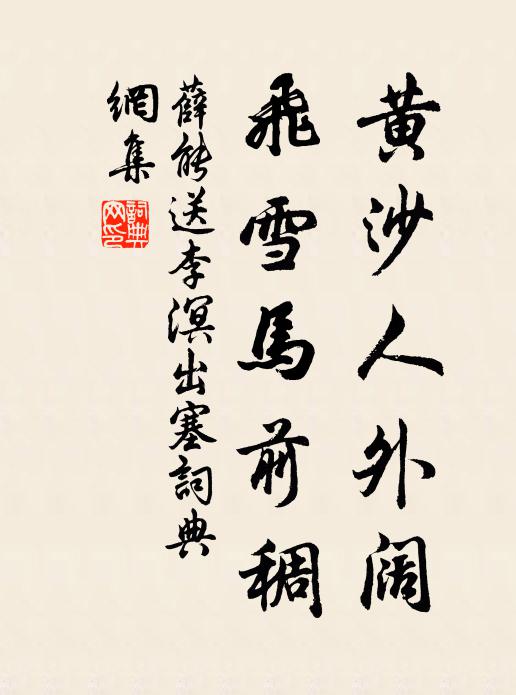 黄沙人外阔
飛雪馬前稠
薛能送李溟出塞詞典
網集
詞典
网印